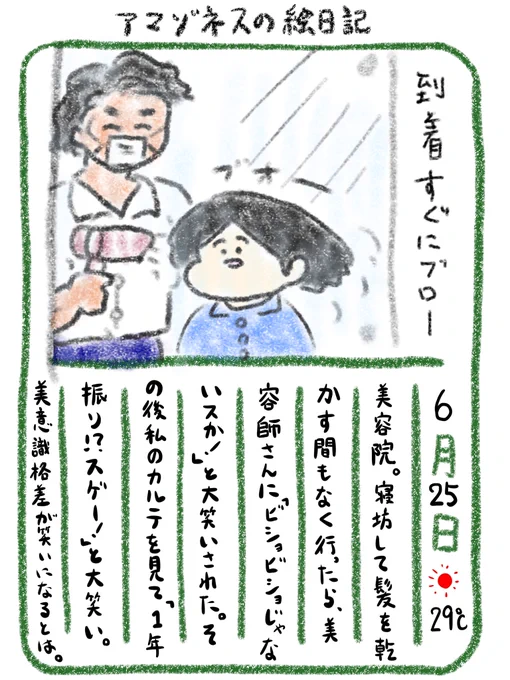 アマゾネスの絵日記
到着すぐにブロー
ブオー
6月25日 29℃
美容院。寝坊して髪を乾
かす間もなく行ったら、美
容師さんに「ビショビショじゃな
いスか!」と大笑いされた。そ
の後私のカルテを見て、「1年
振り!?スゲー!」と大笑い。
美意識格差が笑いになるとは。